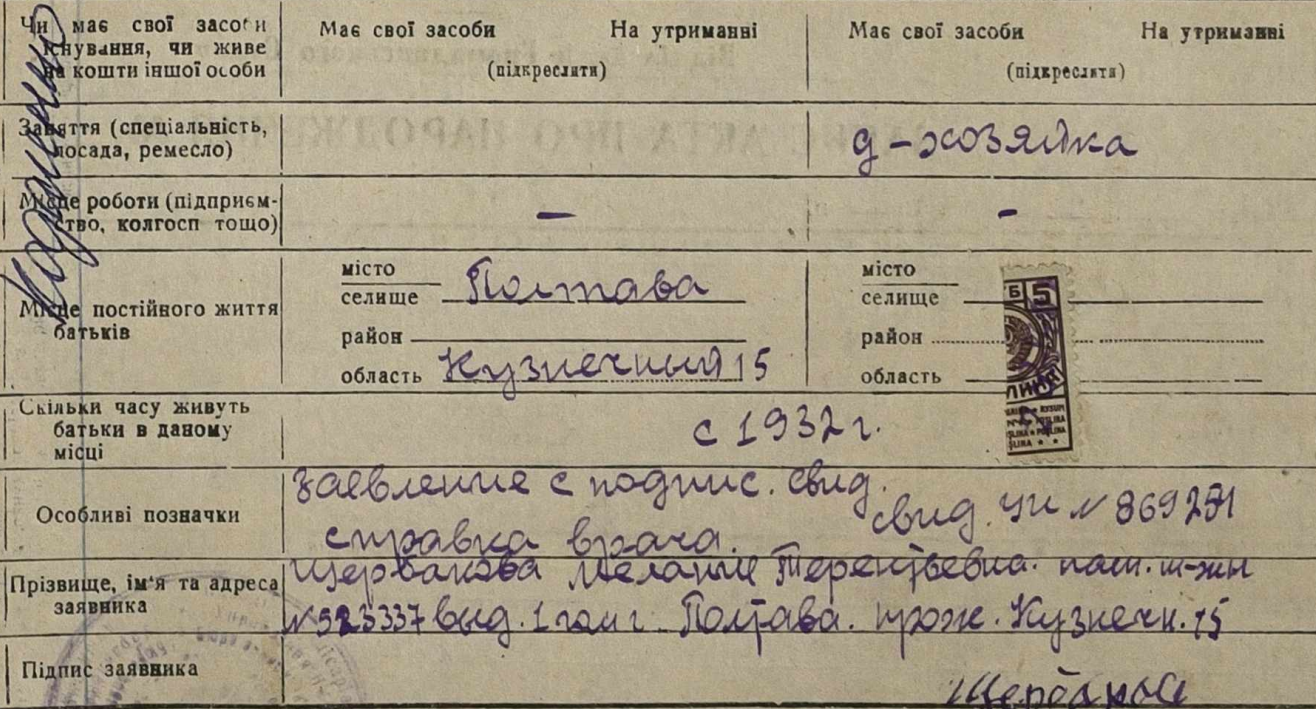 Чи має свої засоби існування, чи живе на кошти іншої особи
Має свої засоби На утриманні
(підкреслити)
Має свої засоби На утриманні
(підкреслити)
Заняття (спеціальність, посада, ремесло)
д-хозяйка
Місце роботи (підприємство, колгосп тощо)
–
-
Місце постійного життя батьків
місто
селище Полтава
район
область Кузнечный 15
місто
селище
район
область
Б 5
Скільки часу живуть батьки в даному місці
с 1932 г.
Особливі позначки
Заевление с подпис. свид.
справка врача.
свид. ЧИ №
Прізвище, ім'я та адреса заявника
Щербакова Мелания Терентьевна. пасп.
№ 523337 выд. 1 гом г. Полтава. прож. Кузнечн. 15
Підпис заявника